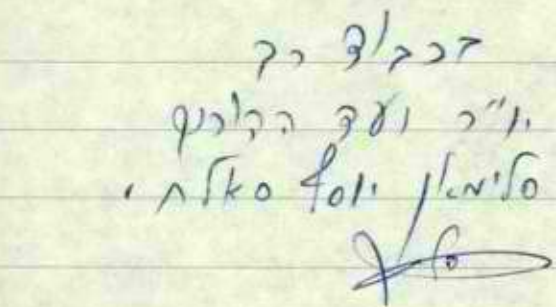 בכבוד רב
יו"ר ועד
סלימאן יוסף סאלח.